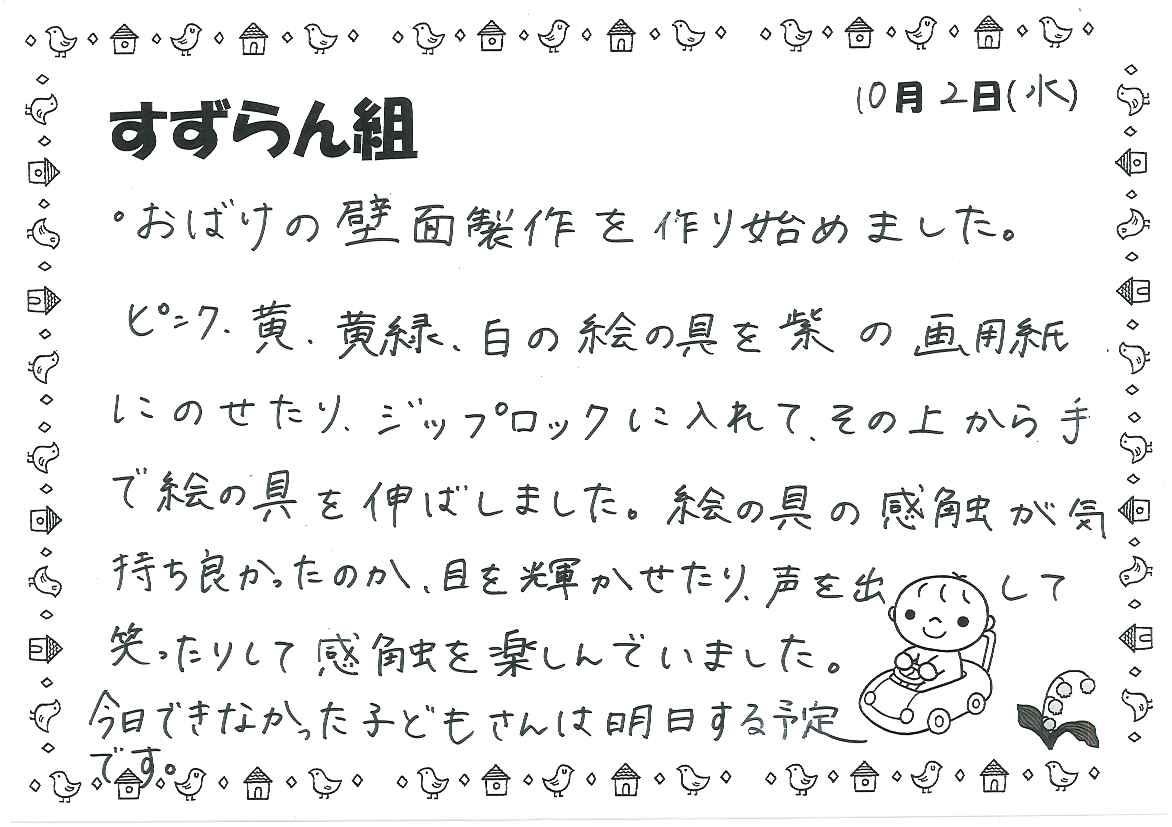 10月2日(水)
すずらん組
°おばけの壁面製作を作り始めました。
ピンク、黄、黄緑、白の絵の具を紫の画用紙
にのせたり、ジップロックに入れて、その上から手
で絵の具を伸ばしました。絵の具の感触が気
持ち良かったのか、目を輝かせたり、声を出して
笑ったりして感触を楽しんでいました。
今日できなかった子どもさんは明日する予定
です。